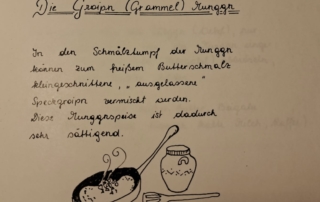 Die Groipn (Grammel) Nunggn
In den Schmälztumpf der Nunggn
können zum heißem Butterschmalz
kleingeschnittene, "ausgelassene"
Speckgroipn vermischt werden.
Diese Nunggnspeise ist dadurch
sehr sättigend.